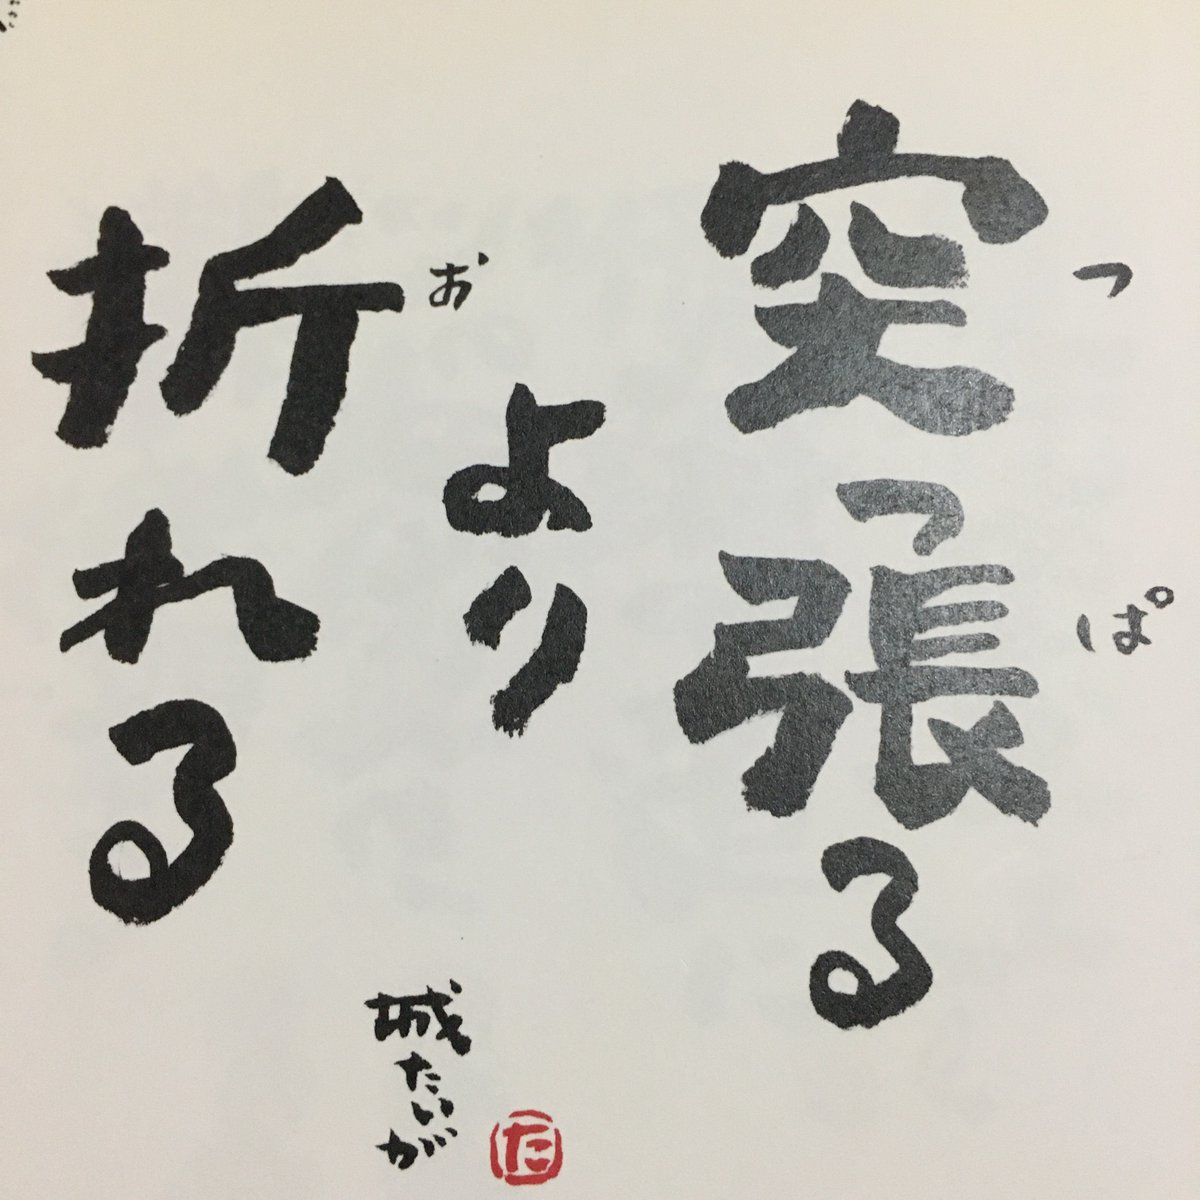 突っ張る
つ
ぱ
より
折れる
お
城たいが
た